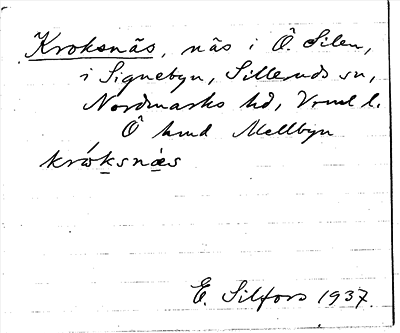 Kroksnäs, näs i Ö. Silen,
i Signebyn, Sillerud sn,
Nordmarks hd, Vrml l.
Ö
Mellbyn
króksnæs
E. Silfors 1937.